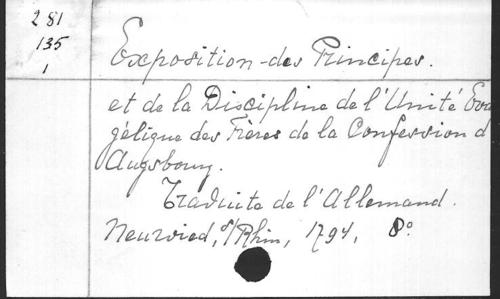 281
135
1
Exposition des Principes.
et de la Discipline de l'Unité Evan
gélique des Frères de la Confession d
Augsbourg.
Traduite de l'Allemand.
Neuwied, s/Rhin, 1794, 8°